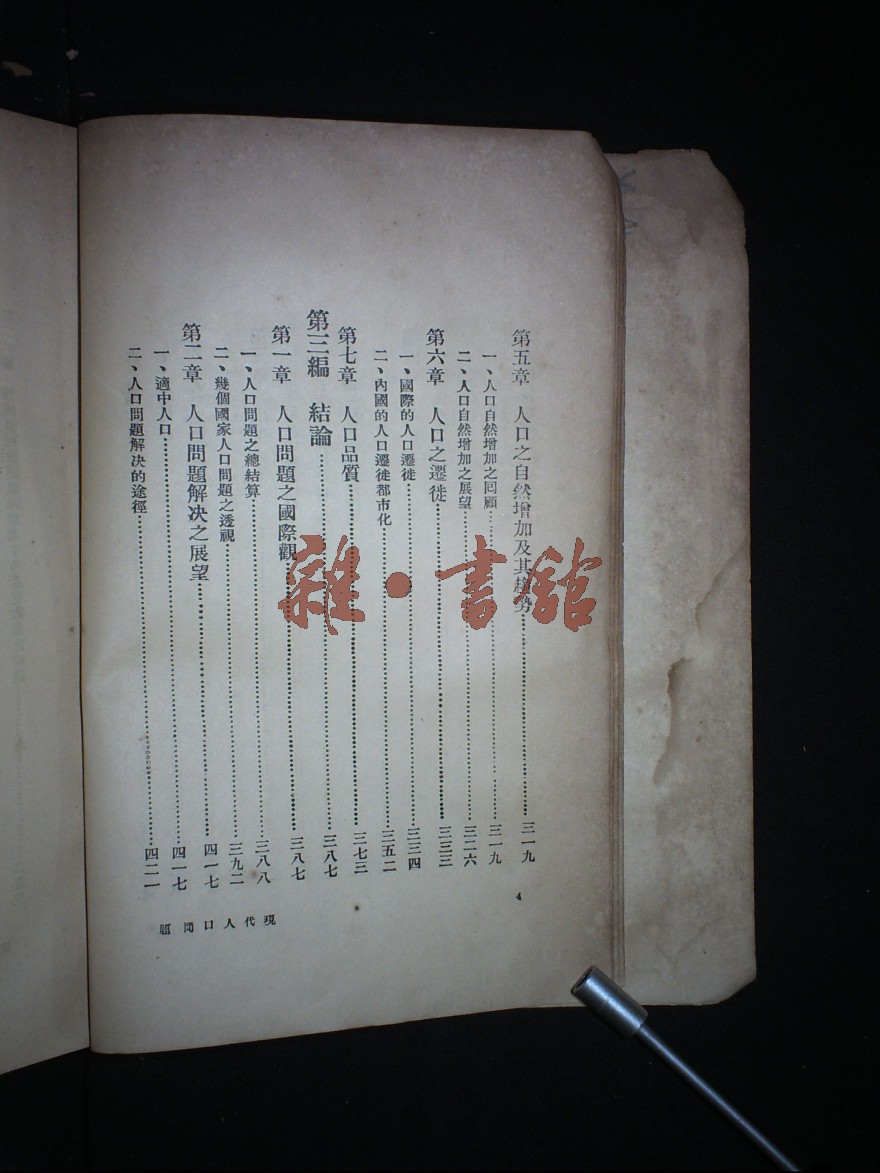 第五章 人口之自然增加及其趨勢……三一九
一、人口自然增加之囘顧……三一九
二、人口自然增加之展望……三二六
第六章 人口之遷徙……三三三
一、國際的人口遷徙……三三四
二、內國的人口遷徙都市化……三五二
第七章 人口品質……三七三
第三編 結論……三八七
第一章 人口問題之國際觀……三八七
一、人口問題之總結算……三八八
二、幾個國家人口問題之透視……三九二
第二章 人口問題解决之展望……四一七
一、適中人口……四一七
二、人口問題解决的途徑……四二一
4
現代人口問題
雜·書館